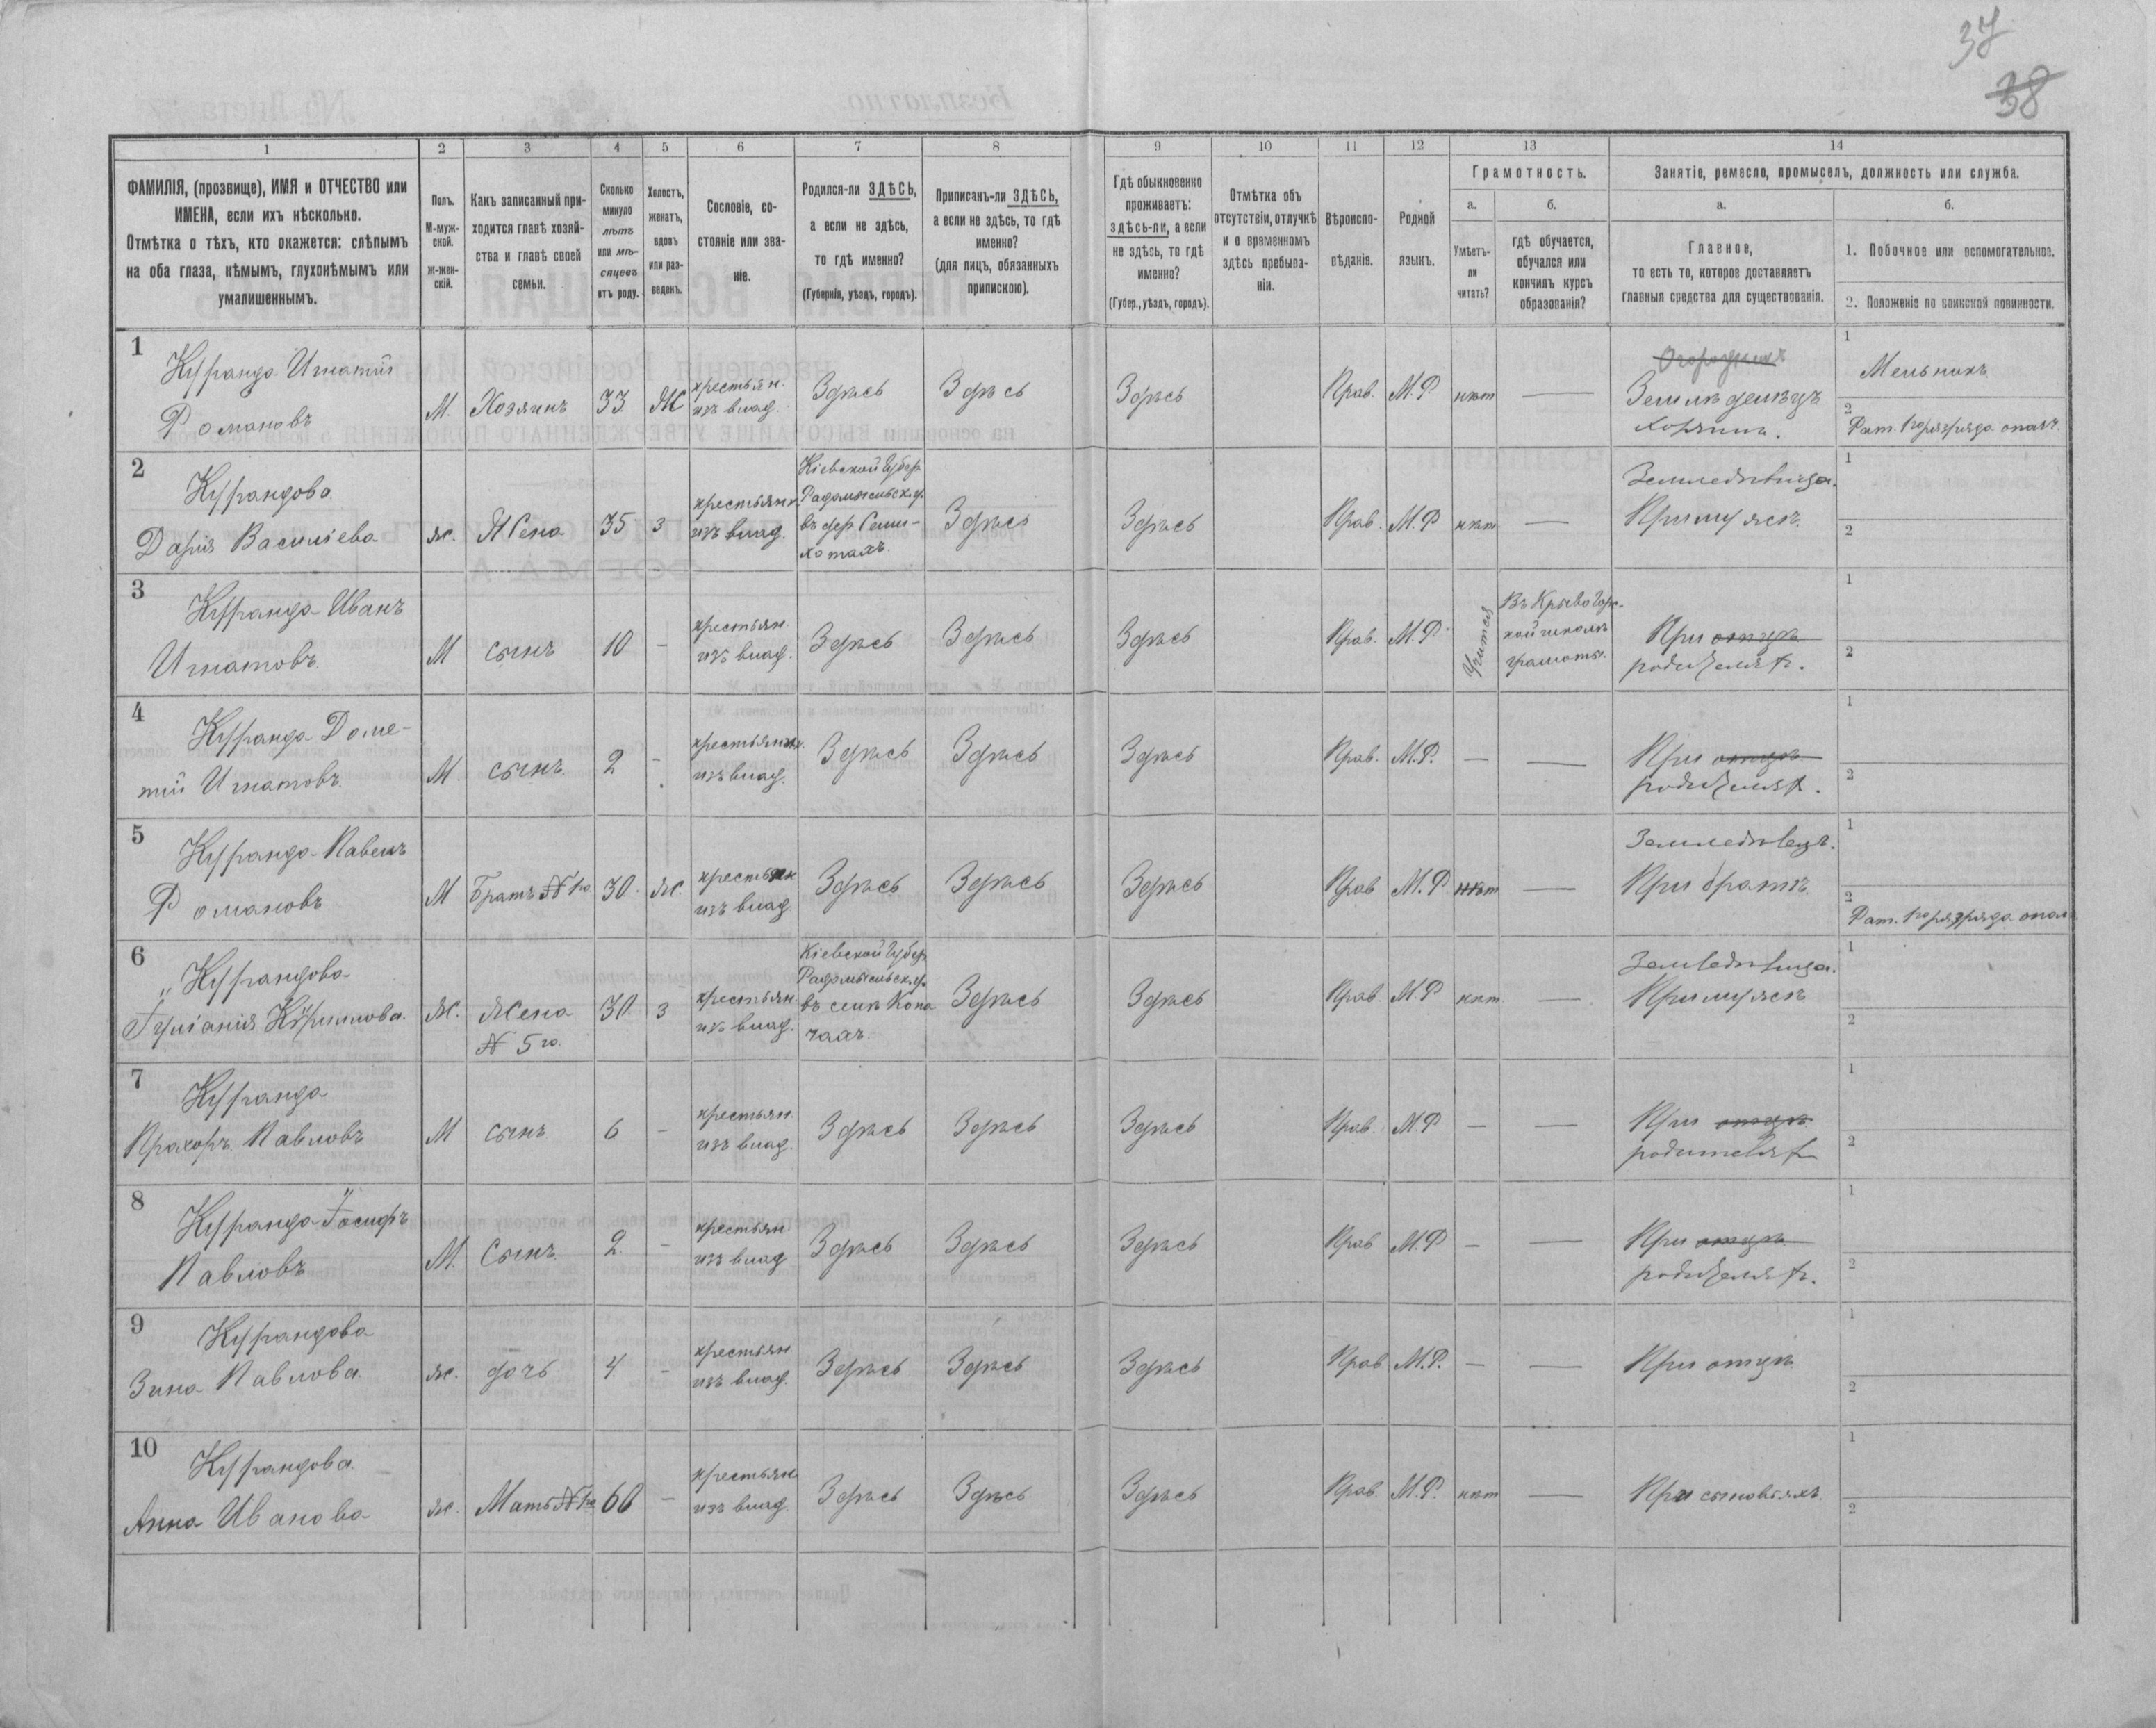 37
38
1
2
3
4
5
6
7
8
9
10
11
12
13
14
ФАМИЛІЯ, (прозвище), ИМЯ и ОТЧЕСТВО или
ИМЕНА, если ихъ нѣсколько.
Отмѣтка о тѣхъ, кто окажется: слѣпымъ
на оба глаза, нѣмымъ, глухонѣмымъ или
умалишеннымъ.
Полъ.
М-муж-
ской.
Ж-жен-
скій.
Какъ записанный при-
ходится главѣ хозяй-
ства и главѣ своей
семьи.
Сколько
минуло
лѣтъ
или мѣ-
сяцевъ
отъ роду.
Холостъ,
женатъ,
вдовъ
или раз-
веденъ.
Сословіе, со-
стояніе или зва-
ніе.
Родился-ли ЗДѢСЬ,
а если не здѣсь,
то гдѣ именно?
(Губернія, уѣздъ, городъ).
Приписанъ-ли ЗДѢСЬ,
а если не здѣсь, то гдѣ
именно?
(для лицъ, обязанныхъ
припискою).
Гдѣ обыкновенно
проживаетъ:
здѣсь-ли, а если
не здѣсь, то гдѣ
именно?
(Губер., уѣздъ, городъ).
Отмѣтка объ
отсутствіи, отлучкѣ
и о временномъ
здѣсь пребыва-
ніи.
Вѣроиспо-
вѣданіе.
Родной
языкъ.
Грамотность.
а.
Умѣетъ-
ли
читать?
б.
гдѣ обучается,
обучался или
кончилъ курсъ
образованія?
Занятіе, ремесло, промыселъ, должность или служба.
а.
Главное,
то есть то, которое доставляетъ
главныя средства для существованія.
б.
1. Побочное или вспомогательное.
2. Положеніе по воинской повинности.
1
Куранда Игнатій
Романовъ
М.
Хозяинъ
33
Ж
крестьян.
изъ влад.
Здѣсь
Здѣсь
Здѣсь
Прав.
М.Р.
нѣт
—
Огородникъ
Земледѣлецъ
хозяинъ.
1
Мельникъ
2
Рат. 1го разряда опалч.
2
Курандова
Дарія Василіева
ж.
Жена
35
з
крестьян.
изъ влад.
Кіевской Губер.
Радомысльск. у.
въ дер.
Здѣсь
Здѣсь
Прав.
М.Р.
нѣт
—
Земледѣлица.
При мужѣ
1
2
3
Куранда Иванъ
Игнатовъ
М
сынъ
10
-
крестьян
изъ влад.
Здѣсь
Здѣсь
Здѣсь
Прав.
М.Р.
Учится
школѣ
грамоты.
При отцѣ
родителях.
1
2
4
Куранда Доме-
тій Игнатовъ
М.
сынъ
2
-
крестьян.
изъ влад.
Здѣсь
Здѣсь
Здѣсь
Прав.
М.Р.
—
—
При отцѣ
родителях.
1
2
5
Куранда Павелъ
Романовъ
М
Братъ № 1го
30.
ж.
крестьян
изъ влад.
Здѣсь
Здѣсь
Здѣсь
Прав
М.Р.
нѣт
—
Земледѣлецъ.
При братѣ
1
2
Рат. 1го разряда опол
6
Курандова
Іуліанія Кириллова.
Ж.
Жена
№ 5го.
30.
з
крестьян
изъ влад.
Кіевской Губер.
Радомысльск. у.
въ селѣ Копа
чахъ.
Здѣсь
Здѣсь
Прав.
М.Р
нѣт
—
Земледѣлица.
При мужѣ
1
2
7
Куранда
Прахоръ Павловъ
М
сынъ
6
-
крестьян.
изъ влад.
Здѣсь
Здѣсь
Здѣсь
Прав.
М.Р
—
—
При отцѣ
родителях
1
2
8
Куранда Іосифъ
Павловъ
М.
Сынъ
2
-
крестьян
изъ влад
Здѣсь
Здѣсь
Здѣсь
Прав
М.Р
—
—
При отцѣ
родителях.
1
2
9
Курандова
Зина Павлова
ж.
дочь
4
-
крестьян
изъ влад.
Здѣсь
Здѣсь
Здѣсь
Прав
М.Р.
—
—
При отцѣ
1
2
10
Курандова
Анна Иванова
ж.
Мать № 1го
66
-
крестьян
изъ влад.
Здѣсь
Здѣсь
Здѣсь
Прав.
М.Р.
нѣт
—
При сыновьяхъ
1
2